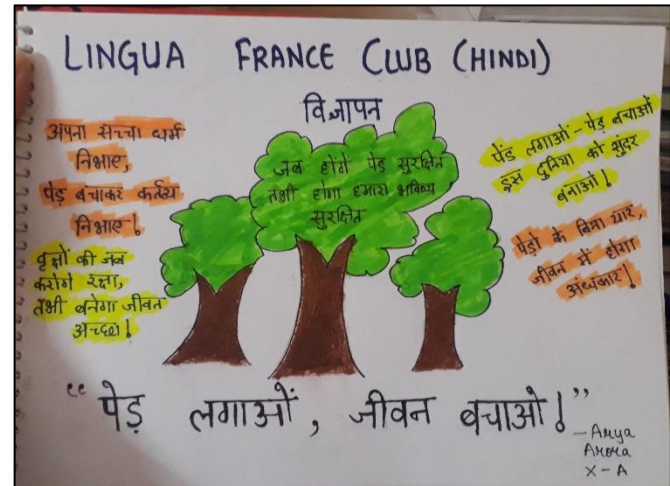 LINGUA FRANCE CLUB (HINDI)
विज्ञापन
अपना सच्चा धर्म
निभाए,
पेड़ बचाकर कर्तव्य
निभाए!
वृक्षों की जब
करोगे रक्षा,
तभी बनेगा जीवन
अच्छा!
जब होंगे पेड़ सुरक्षित
तभी होगा हमारा भविष्य
सुरक्षित
पेंड लगाओं - पेड़ बचाओं
इस दुनिया को सुंदर
बनाओं!
पेड़ो के बिना यार,
जीवन में होगा
अंधकार!
“पेड़ लगाओं, जीवन बचाओ!”
- Arya
Arora
X-A